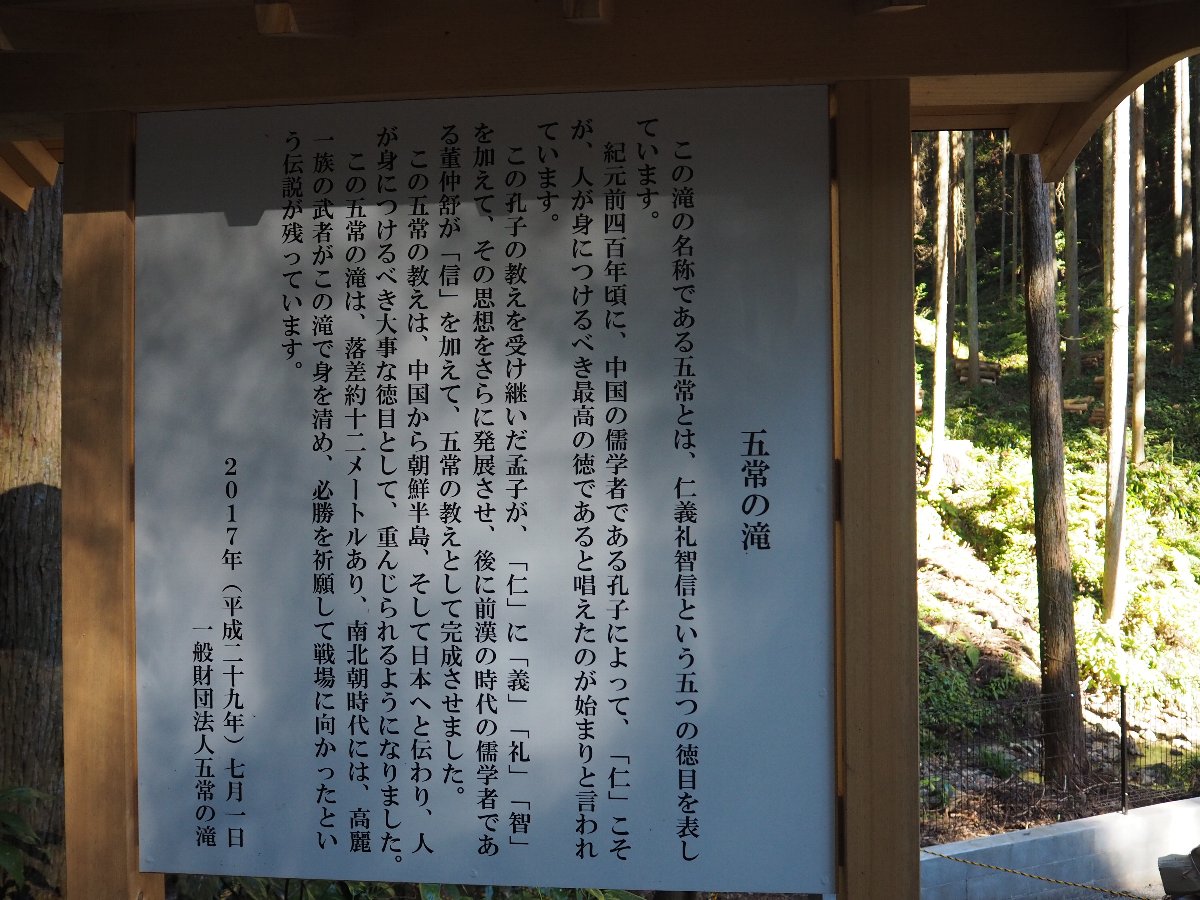 五常の滝
この滝の名称である五常とは、仁義礼智信という五つの徳目を表し
ています。
紀元前四百年頃に、中国の儒学者である孔子によって、「仁」こそ
が、人が身につけるべき最高の徳であると唱えたのが始まりと言われ
ています。
この孔子の教えを受け継いだ孟子が、「仁」に「義」「礼」「智」
を加えて、その思想をさらに発展させ、後に前漢の時代の儒学者であ
る董仲舒が「信」を加えて、五常の教えとして完成させました。
この五常の教えは、中国から朝鮮半島、そして日本へと伝わり、人
が身につけるべき大事な徳目として、重んじられるようになりました。
この五常の滝は、落差約十二メートルあり、南北朝時代には、高麗
一族の武者がこの滝で身を清め、必勝を祈願して戦場に向かったとい
う伝説が残っています。
2017年（平成二十九年）七月一日
一般財団法人五常の滝